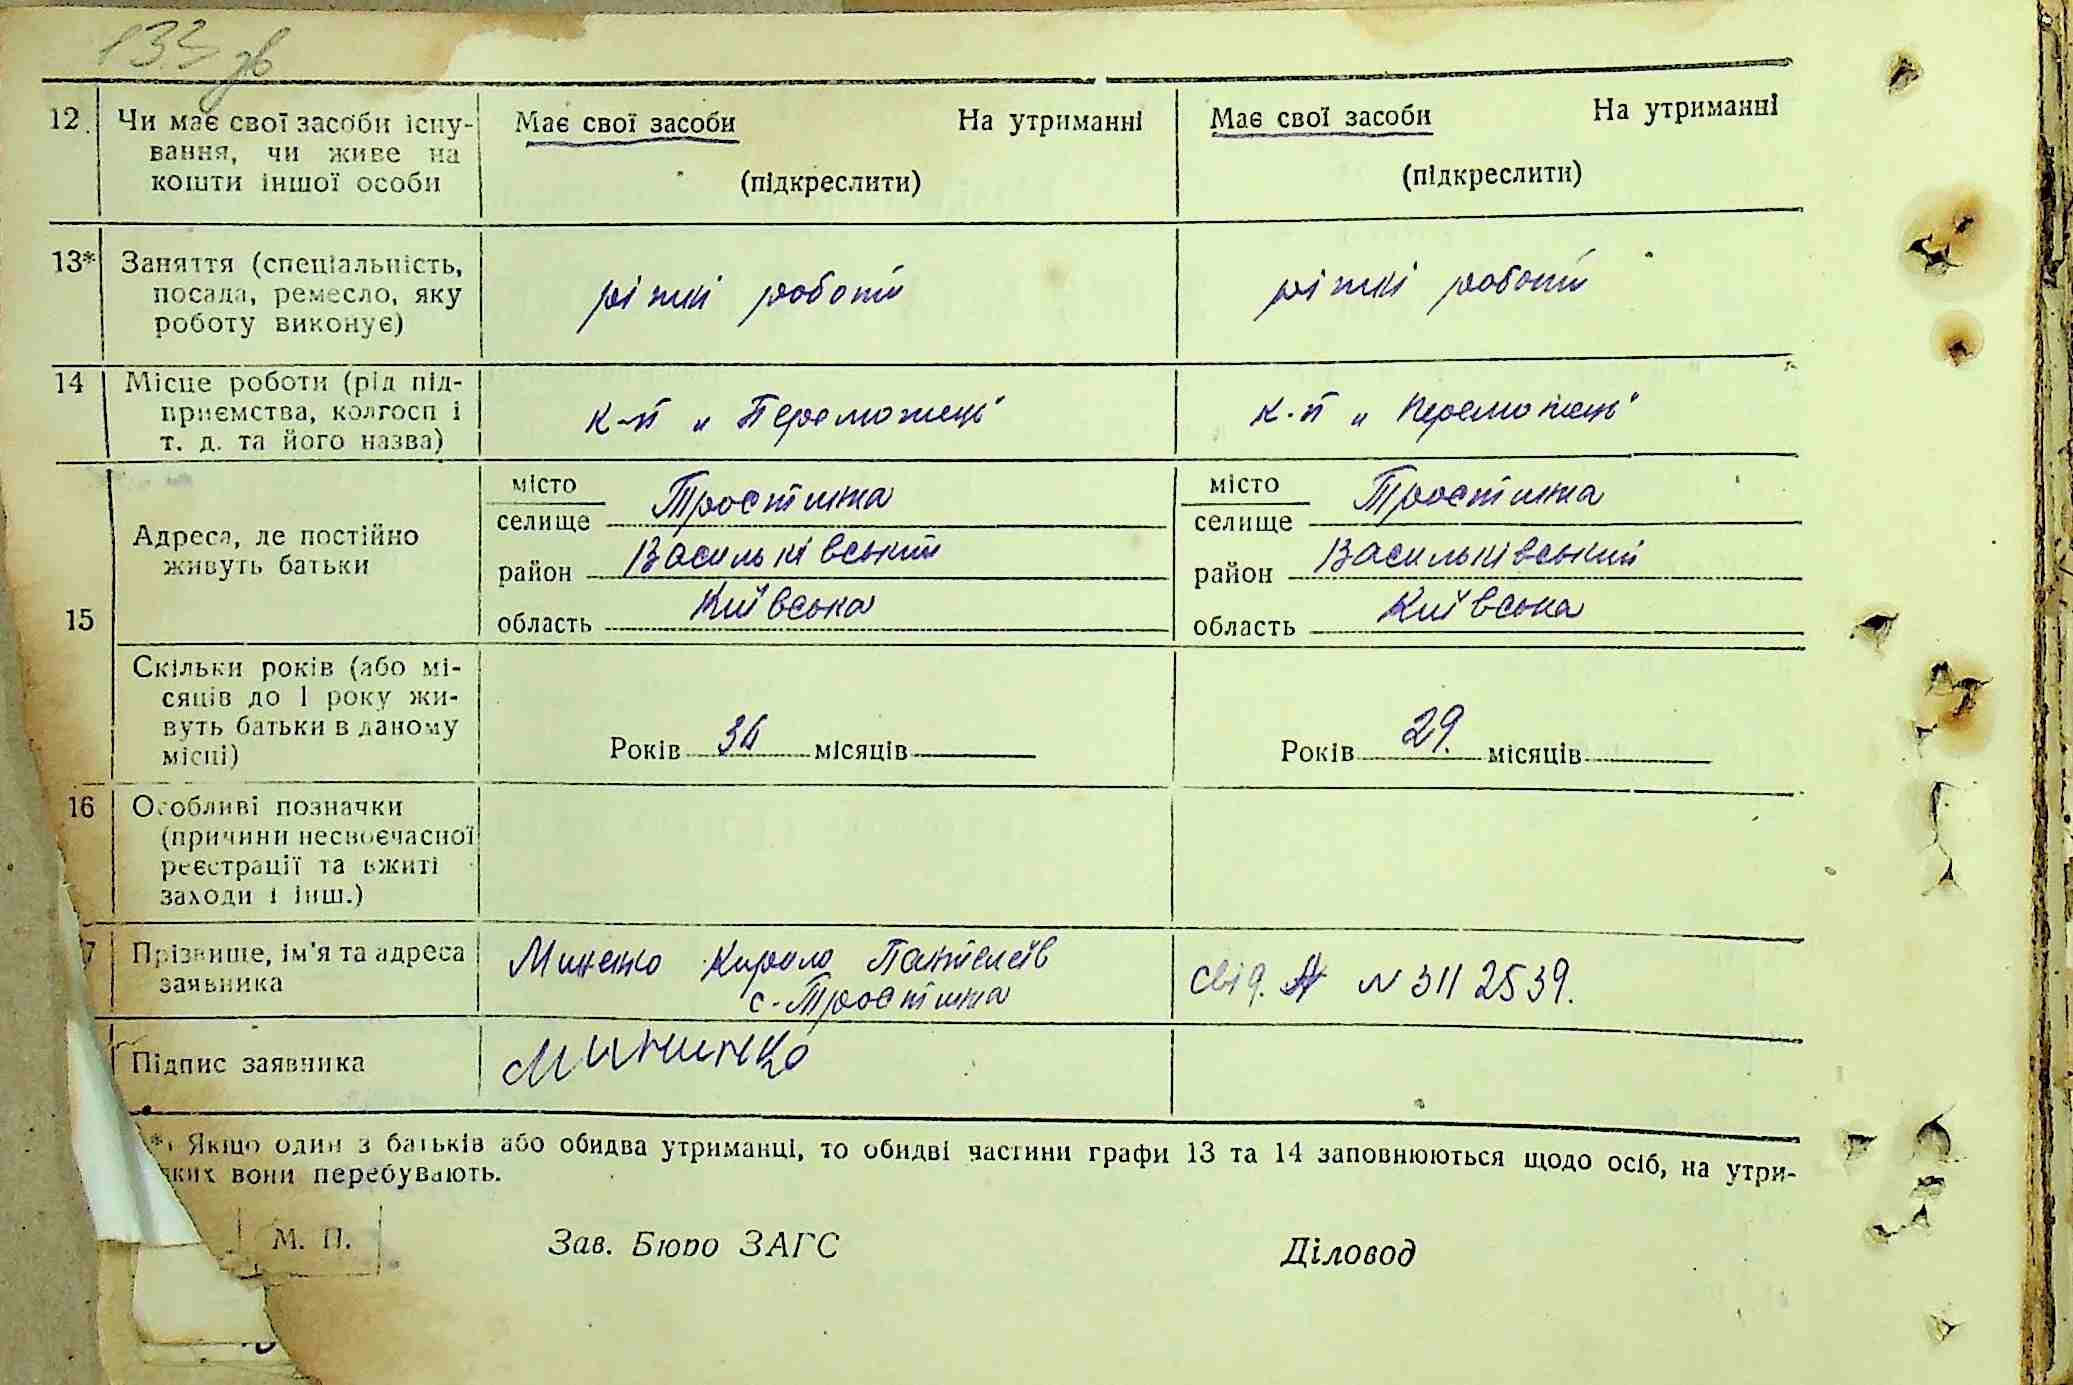 133 зв
12. Чи має свої засоби існу-
вання, чи живе на
кошти іншої особи
Має свої засоби На утриманні
(підкреслити)
Має свої засоби На утриманні
(підкреслити)
13* Заняття (спеціальність,
посада, ремесло, яку
роботу виконує)
різні роботи
різні роботи
14 Місце роботи (рід під-
приємства, колгосп і
т. д. та його назва)
к-п „Переможець"
к-п „Переможець"
15
Адреса, де постійно
живуть батьки
місто
селище Тростинка
район Васильківський
область Київська
місто
селище Тростинка
район Васильківський
область Київська
Скільки років (або мі-
сяців до 1 року жи-
вуть батьки в даному
місці)
Років 34 місяців
Років 29. місяців
16 Особливі позначки
(причини несвоєчасної
реєстрації та вжиті
заходи і інш.)
7 Прізвище, ім'я та адреса
заявника
Миненко Кирило Пантелеїв
с-Тростинка
свід. № 3112539.
Підпис заявника
Мининко
*) Якщо один з батьків або обидва утриманці, то обидві частини графи 13 та 14 заповнюються щодо осіб, на утри-
яких вони перебувають.
М. П. Зав. Бюро ЗАГС Діловод